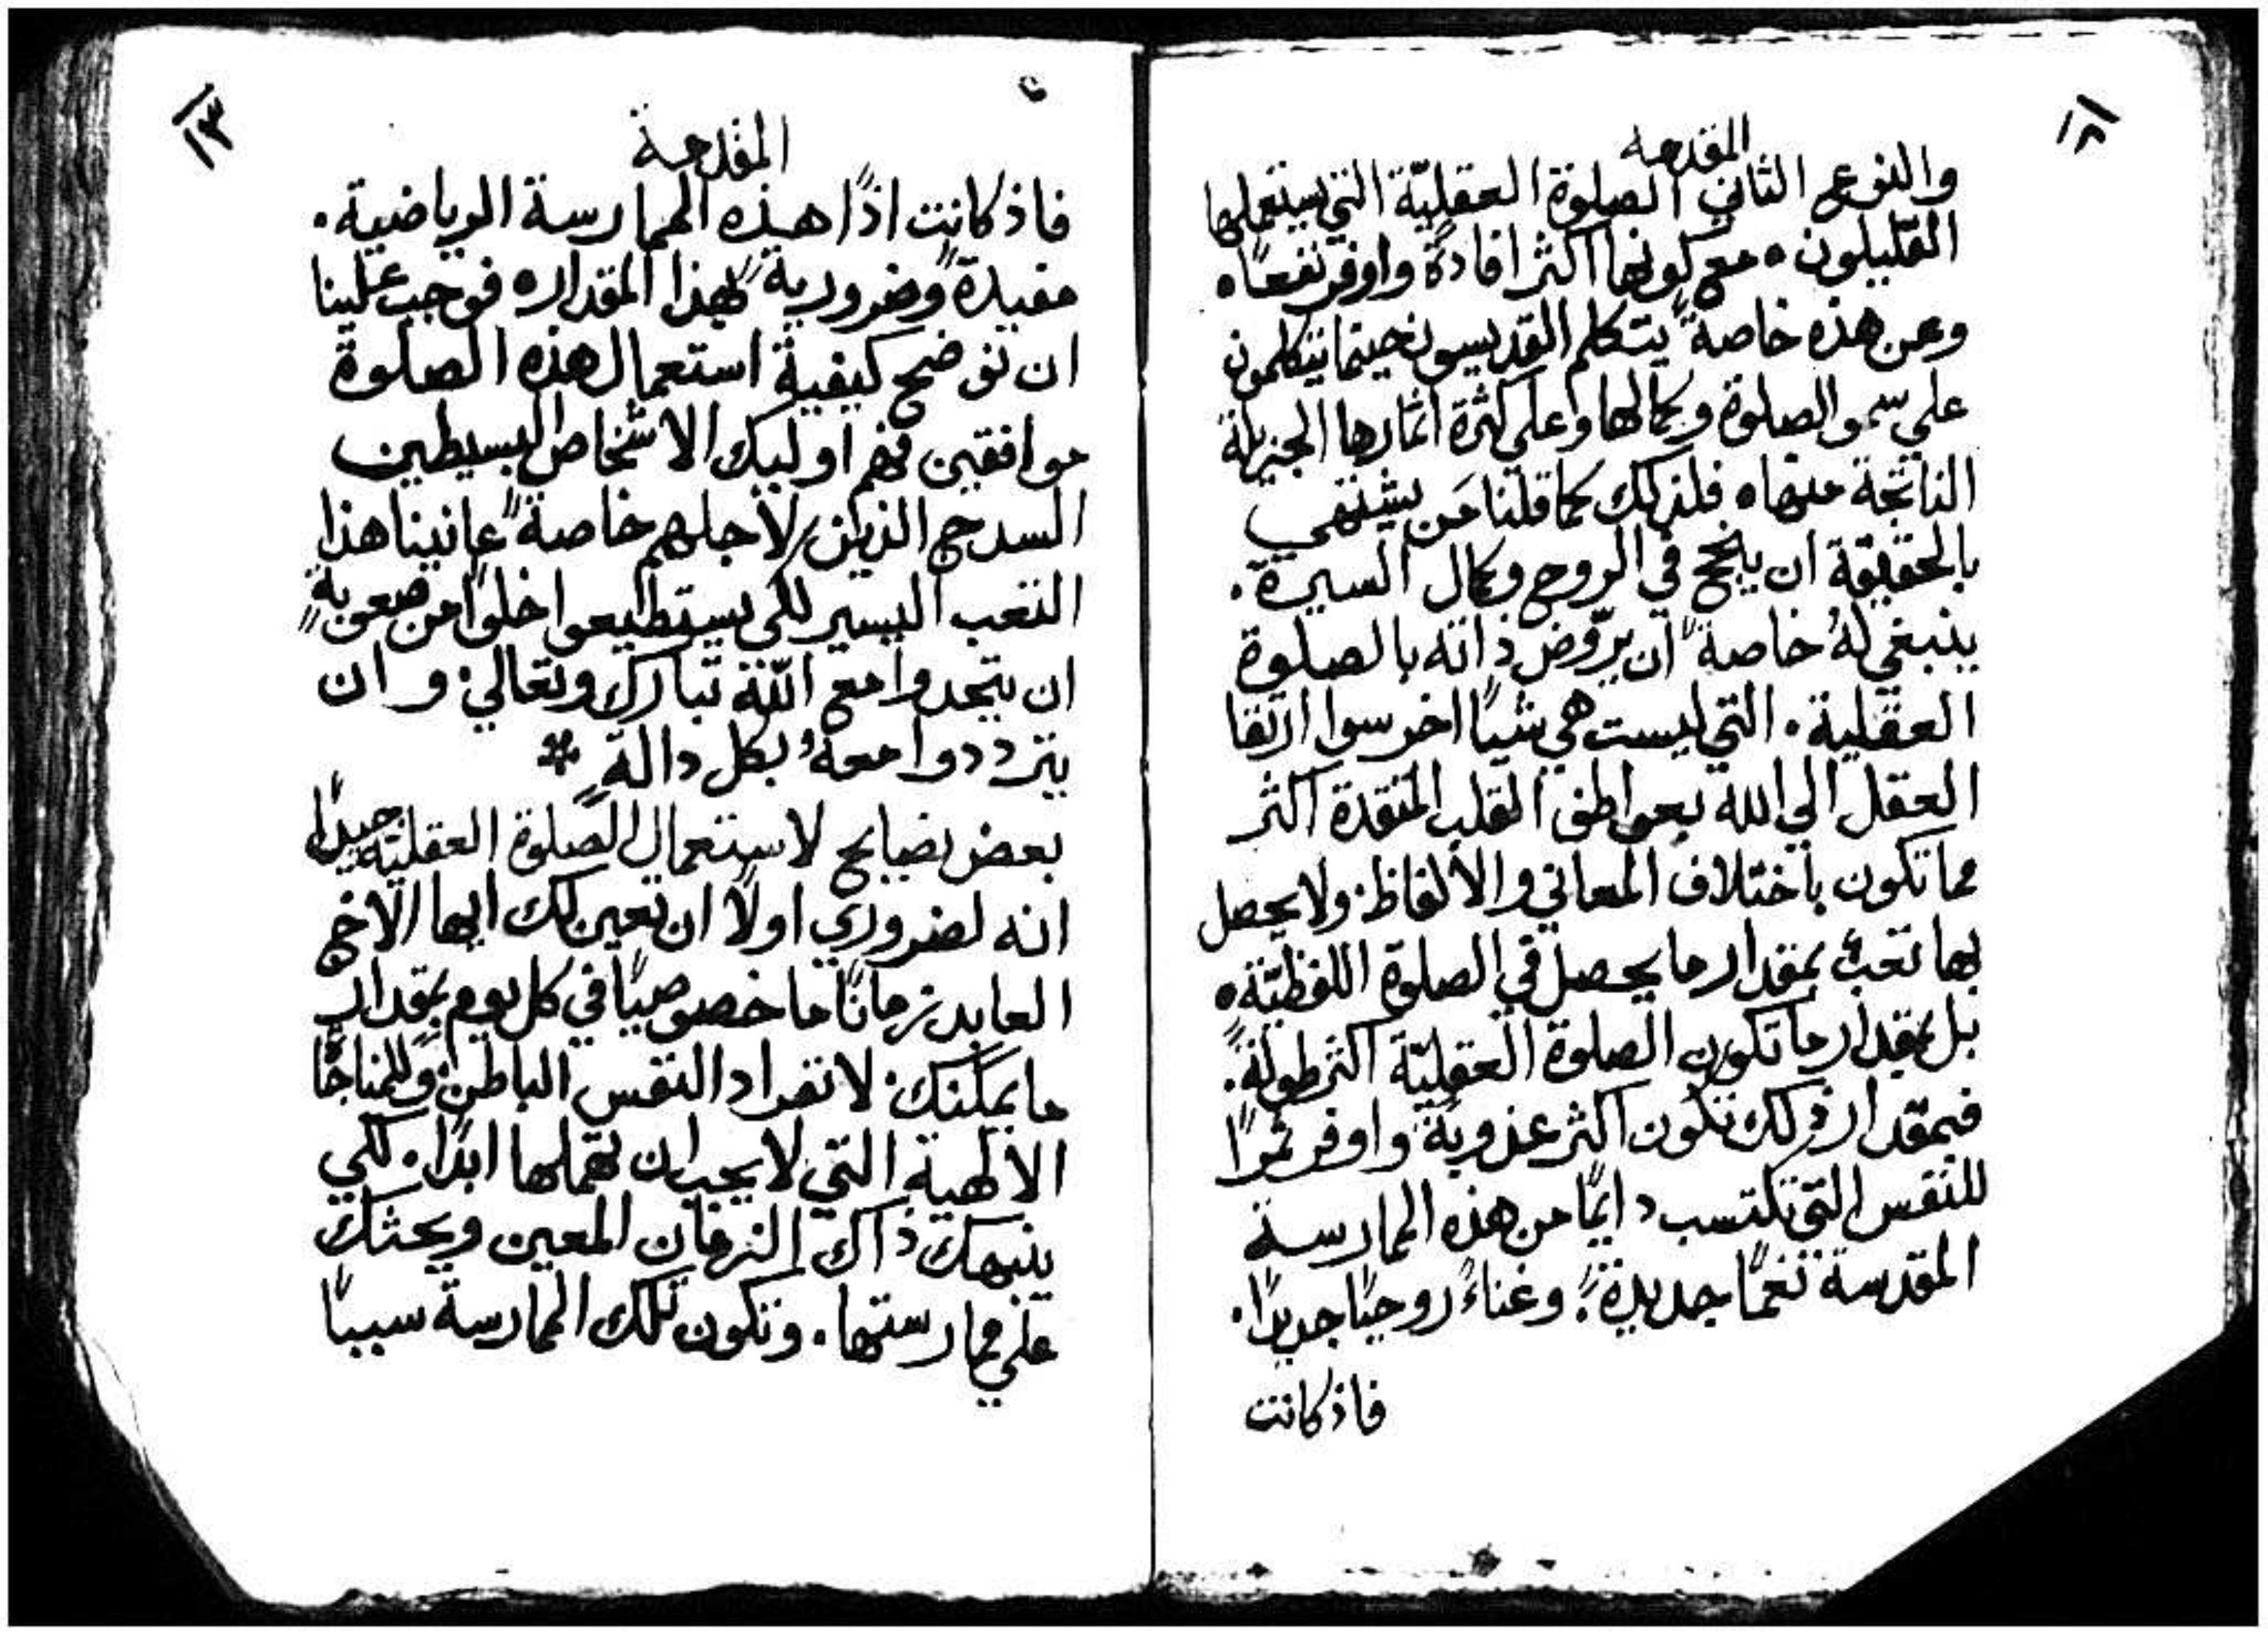 ١٢
المقدمه
والنوع الثاني الصلوة العقليّة التي يستعملها
القليلون ٥ مع كونها اكثر افادةً واوفر نفعًا ٥
وعن هذه خاصةً يتكلم القديسون حينما يتكلمون
علي سمو الصلوة وكمالها وعلي كثرة اثمارها الجزيلة
الناتجة منها ٥ فلذلك كما قلنا مَن يشتهي
بالحقيقة ان ينجح في الروح وكمال السيرة .
ينبغي لهُ خاصةً ان يروّض ذاته بالصلوة
العقلية . التي ليست هي شيًا اخر سوا ارتقا
العقل الي الله بعواطف القلب المتقدة اكثر
مما تكون باختلاف المعاني والالفاظ . ولا يحصل
بها تعبٌ بمقدار ما يحصل في الصلوة اللفظيّة ٥
بل بمقدار ما تكون الصلوة العقليّة اكثر طولةً .
فبمقدار ذلك تكون اكثر عذوبةً واوفر ثمرًا
للنفس التي تكتسب دايمًا من هذه الممارسة
المقدسة نغمًا جديدةً . وغناءً روحيًا جديدًا .
فاذ كانت
١٣
المقدمة
فاذ كانت اذًا هذه الممارسة الرياضية .
مفيدةً وضروريةً لهذا المقدار ٥ فوجب علينا
ان نوضح كيفية استعمال هذه الصلوة
موافقين فهم اوليك الاشخاص البسيطين
السدج الذين لاجلهم خاصةً عانينا هذا
التعب اليسير لكي يستطيعوا خلوًا من صعوبةٍ
ان يتحدوا مع اللّه تبارك وتعالي . وان
يترددوا معهُ بكل دالةٍ *
بعض نصايح لاستعمال الصلوة العقليّة جيدًا
انه لضروري اولًا ان تعين لك ايها الاخ
العابد زمانًا ما خصوصيًا في كل يوم بمقدار
ما يمكنك . لانفراد النفس الباطن . وللمناجاة
الالهية التي لا يجب ان تهملها ابدًا . لكي
ينبهك ذاك الزمان المعين ويحثك
علي ممارستها . وتكون تلك الممارسة سببًا